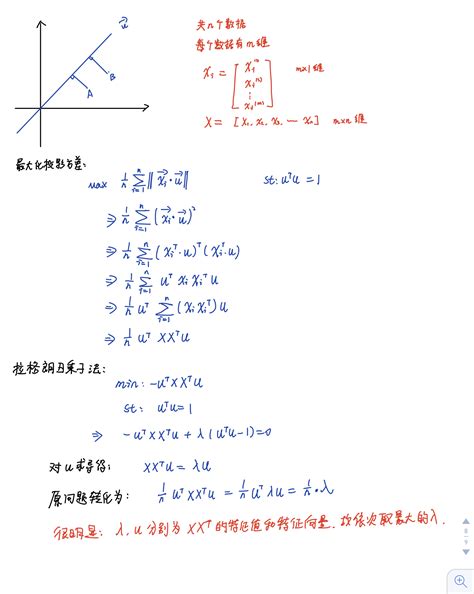 u⃗
B
A
共n个数据
每个数据有m维
x₁ = [x₁⁽¹⁾ x₁⁽²⁾ ⋮ x₁⁽ᵐ⁾] m×1维
X = [x₁, x₂, x₃, ⋯ xₙ] m×n维
最大化投影方差:
max 1/n ∑ᵢ₌₁ⁿ ‖x⃗ᵢ·u⃗‖ st: uᵀu = 1
⇒ 1/n ∑ᵢ₌₁ⁿ (x⃗ᵢ·u⃗)²
⇒ 1/n ∑ᵢ₌₁ⁿ (xᵢᵀ·u)ᵀ(xᵢᵀ·u)
⇒ 1/n ∑ᵢ₌₁ⁿ uᵀxᵢxᵢᵀu
⇒ 1/n uᵀ ∑ᵢ₌₁ⁿ (xᵢxᵢᵀ)u
⇒ 1/n uᵀXXᵀu
拉格朗日乘子法:
min: -uᵀXXᵀu
st: uᵀu=1
⇒ -uᵀXXᵀu + λ(uᵀu-1)=0
对u求导得: XXᵀu = λu
原问题转化为: 1/n uᵀXXᵀu = 1/n uᵀλu = 1/n·λ
很明显: λ, u 分别为XXᵀ的特征值和特征向量, 故依次取最大的λ.